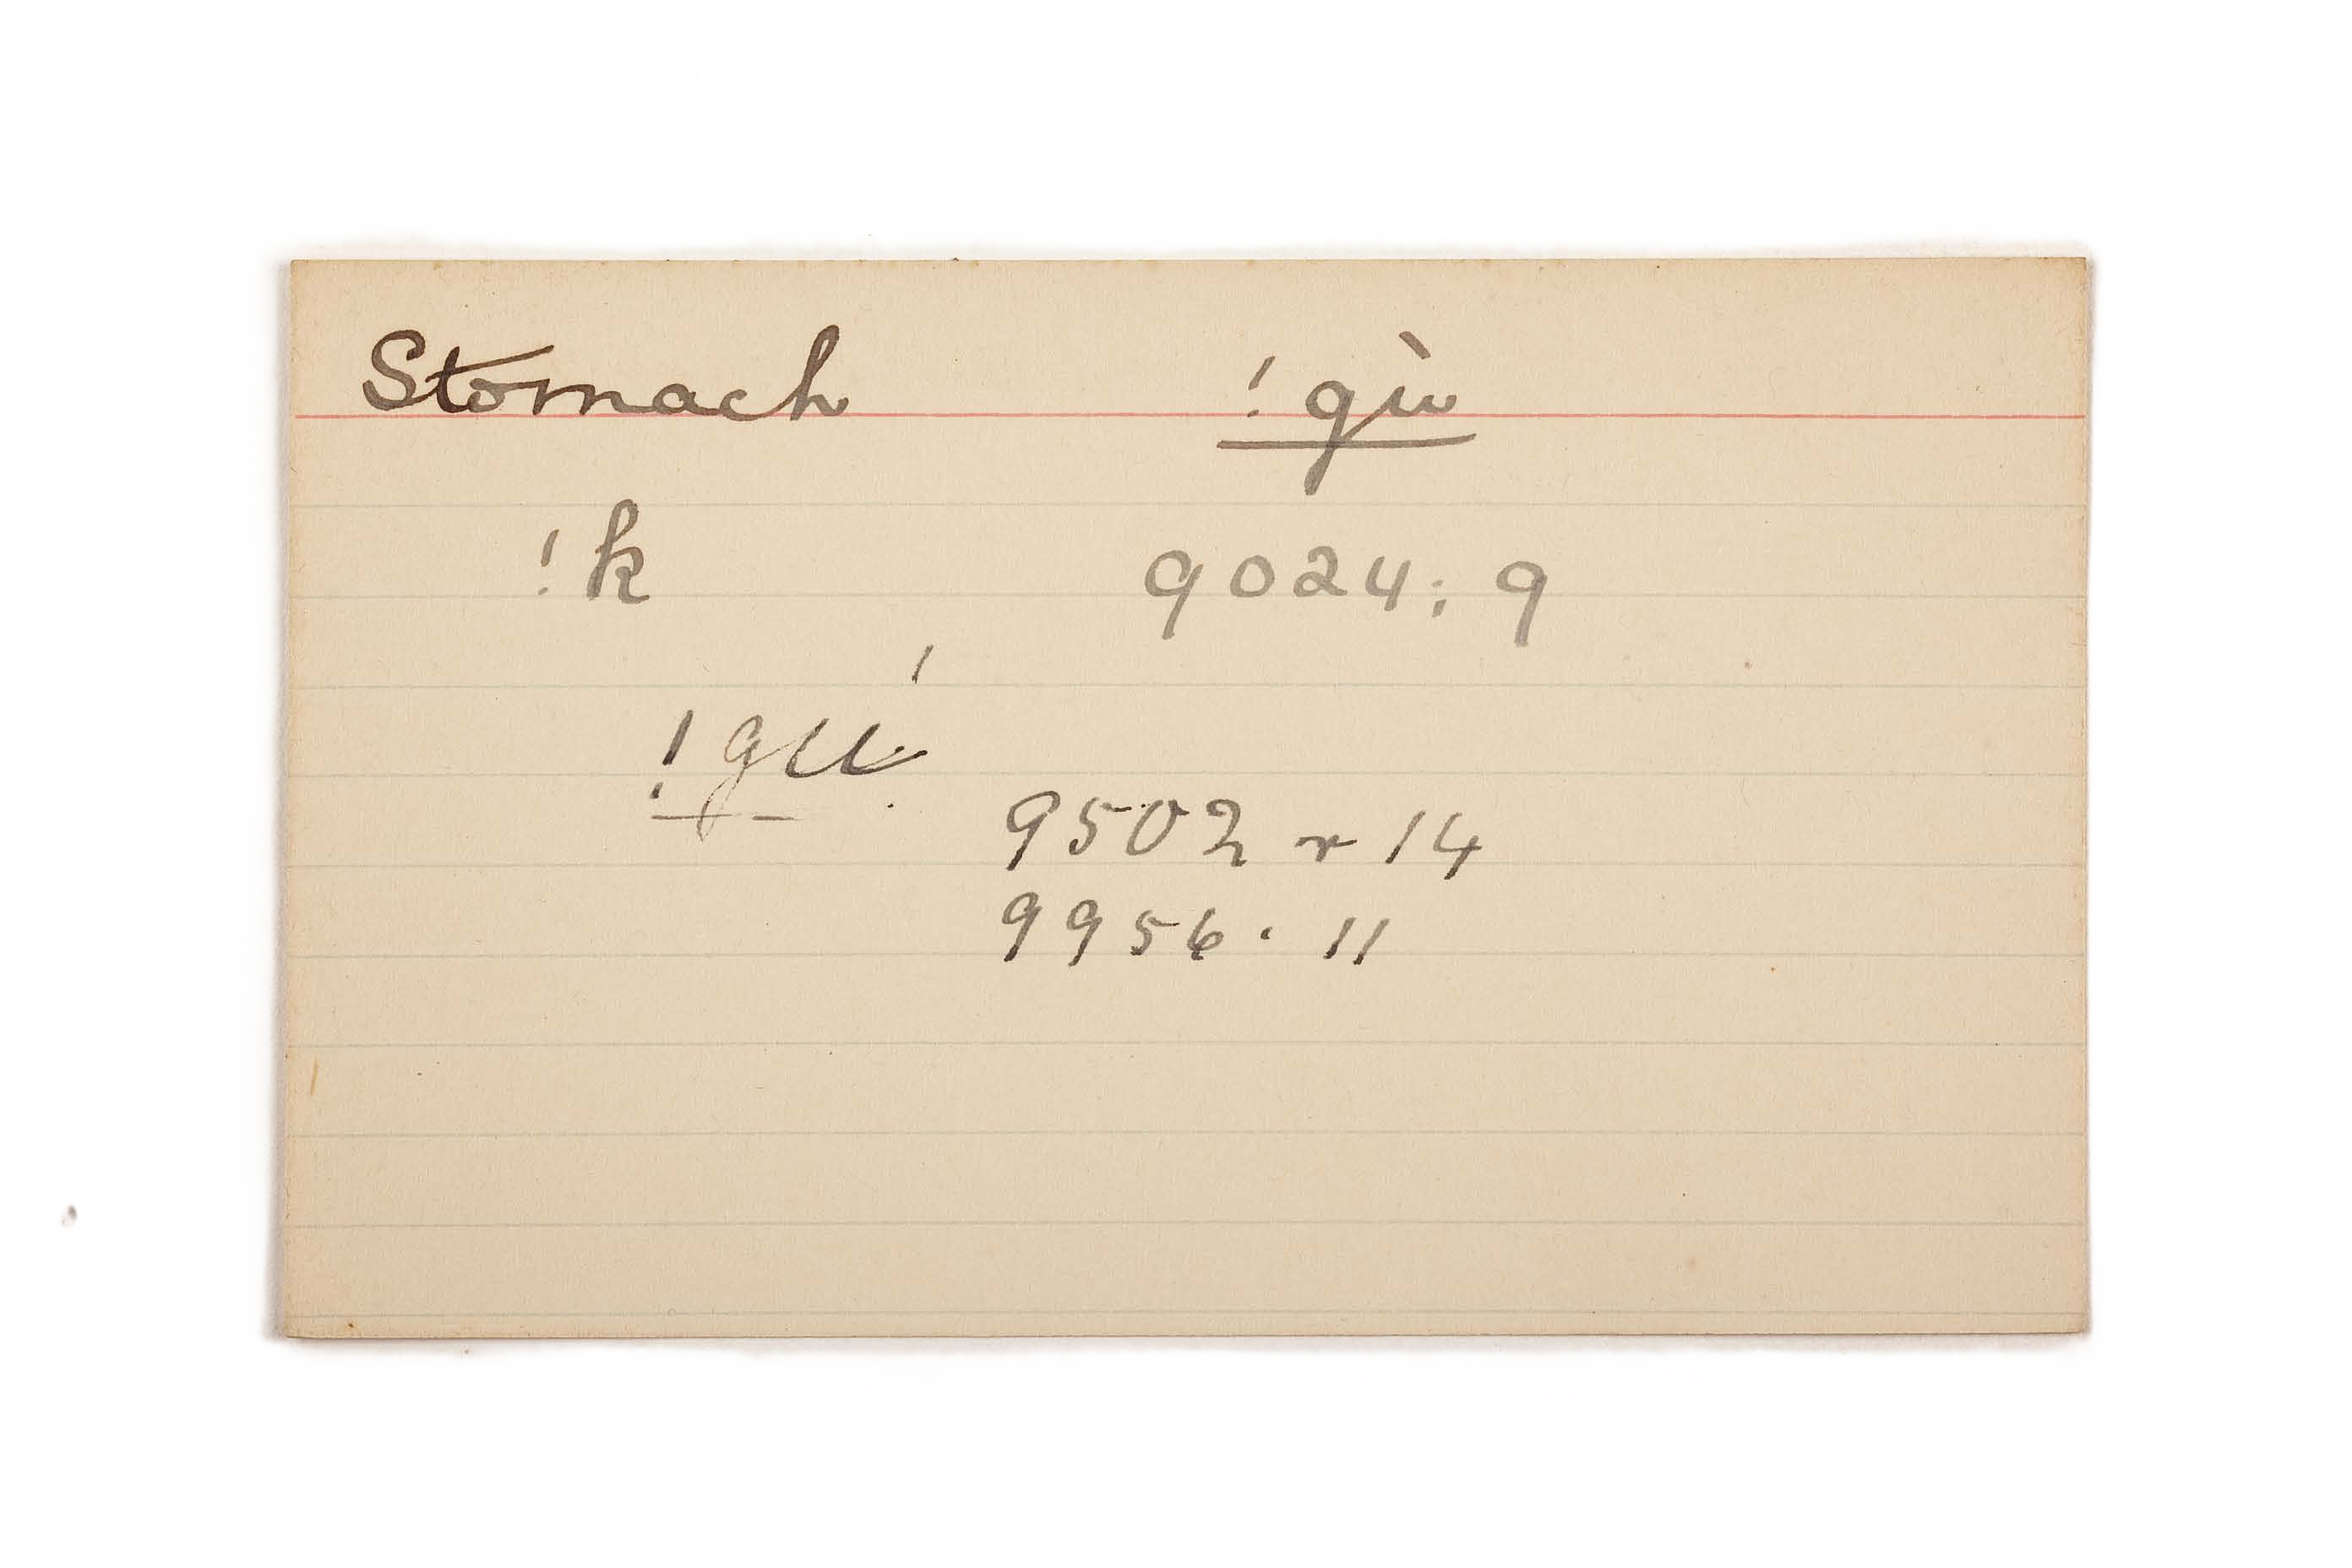 Stomach !gù
!k 9024; 9
!gú
9502 r 14
9956. 11